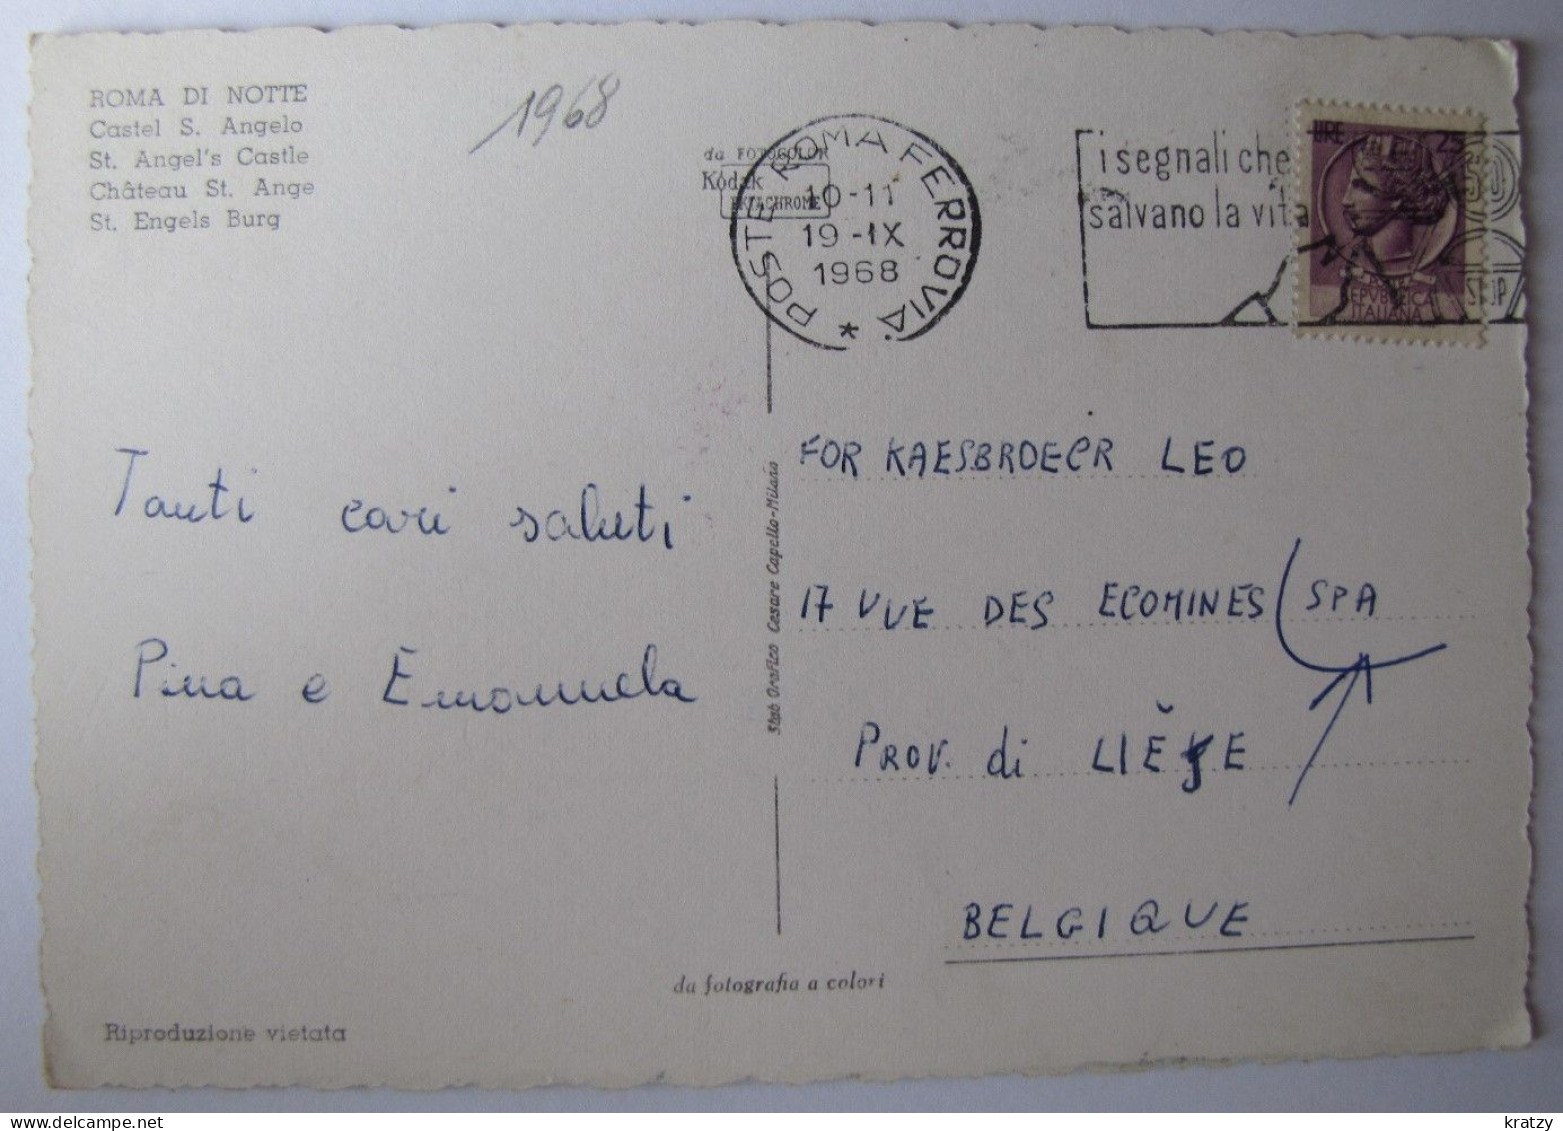 ROMA DI NOTTE
Castel S. Angelo
St. Angel's Castle
Château St. Ange
St. Engels Burg
1968
da FOTOCOLOR
Kodak
EKTACHROME
POSTE ROMA FERROVIA *
10-11
19-IX
1968
i segnali che
salvano la vita
STOP
LIRE 25
REPVBBLICA
ITALIANA
Tanti cari saluti
Pina e Emanuela
Stab Grafico Cesare Capello-Milano
FOR KAESBROECR LEO
17 VUE DES ECOMINES (SPA
PROV. di LIEGE
BELGIQUE
da fotografia a colori
Riproduzione vietata
kratzy